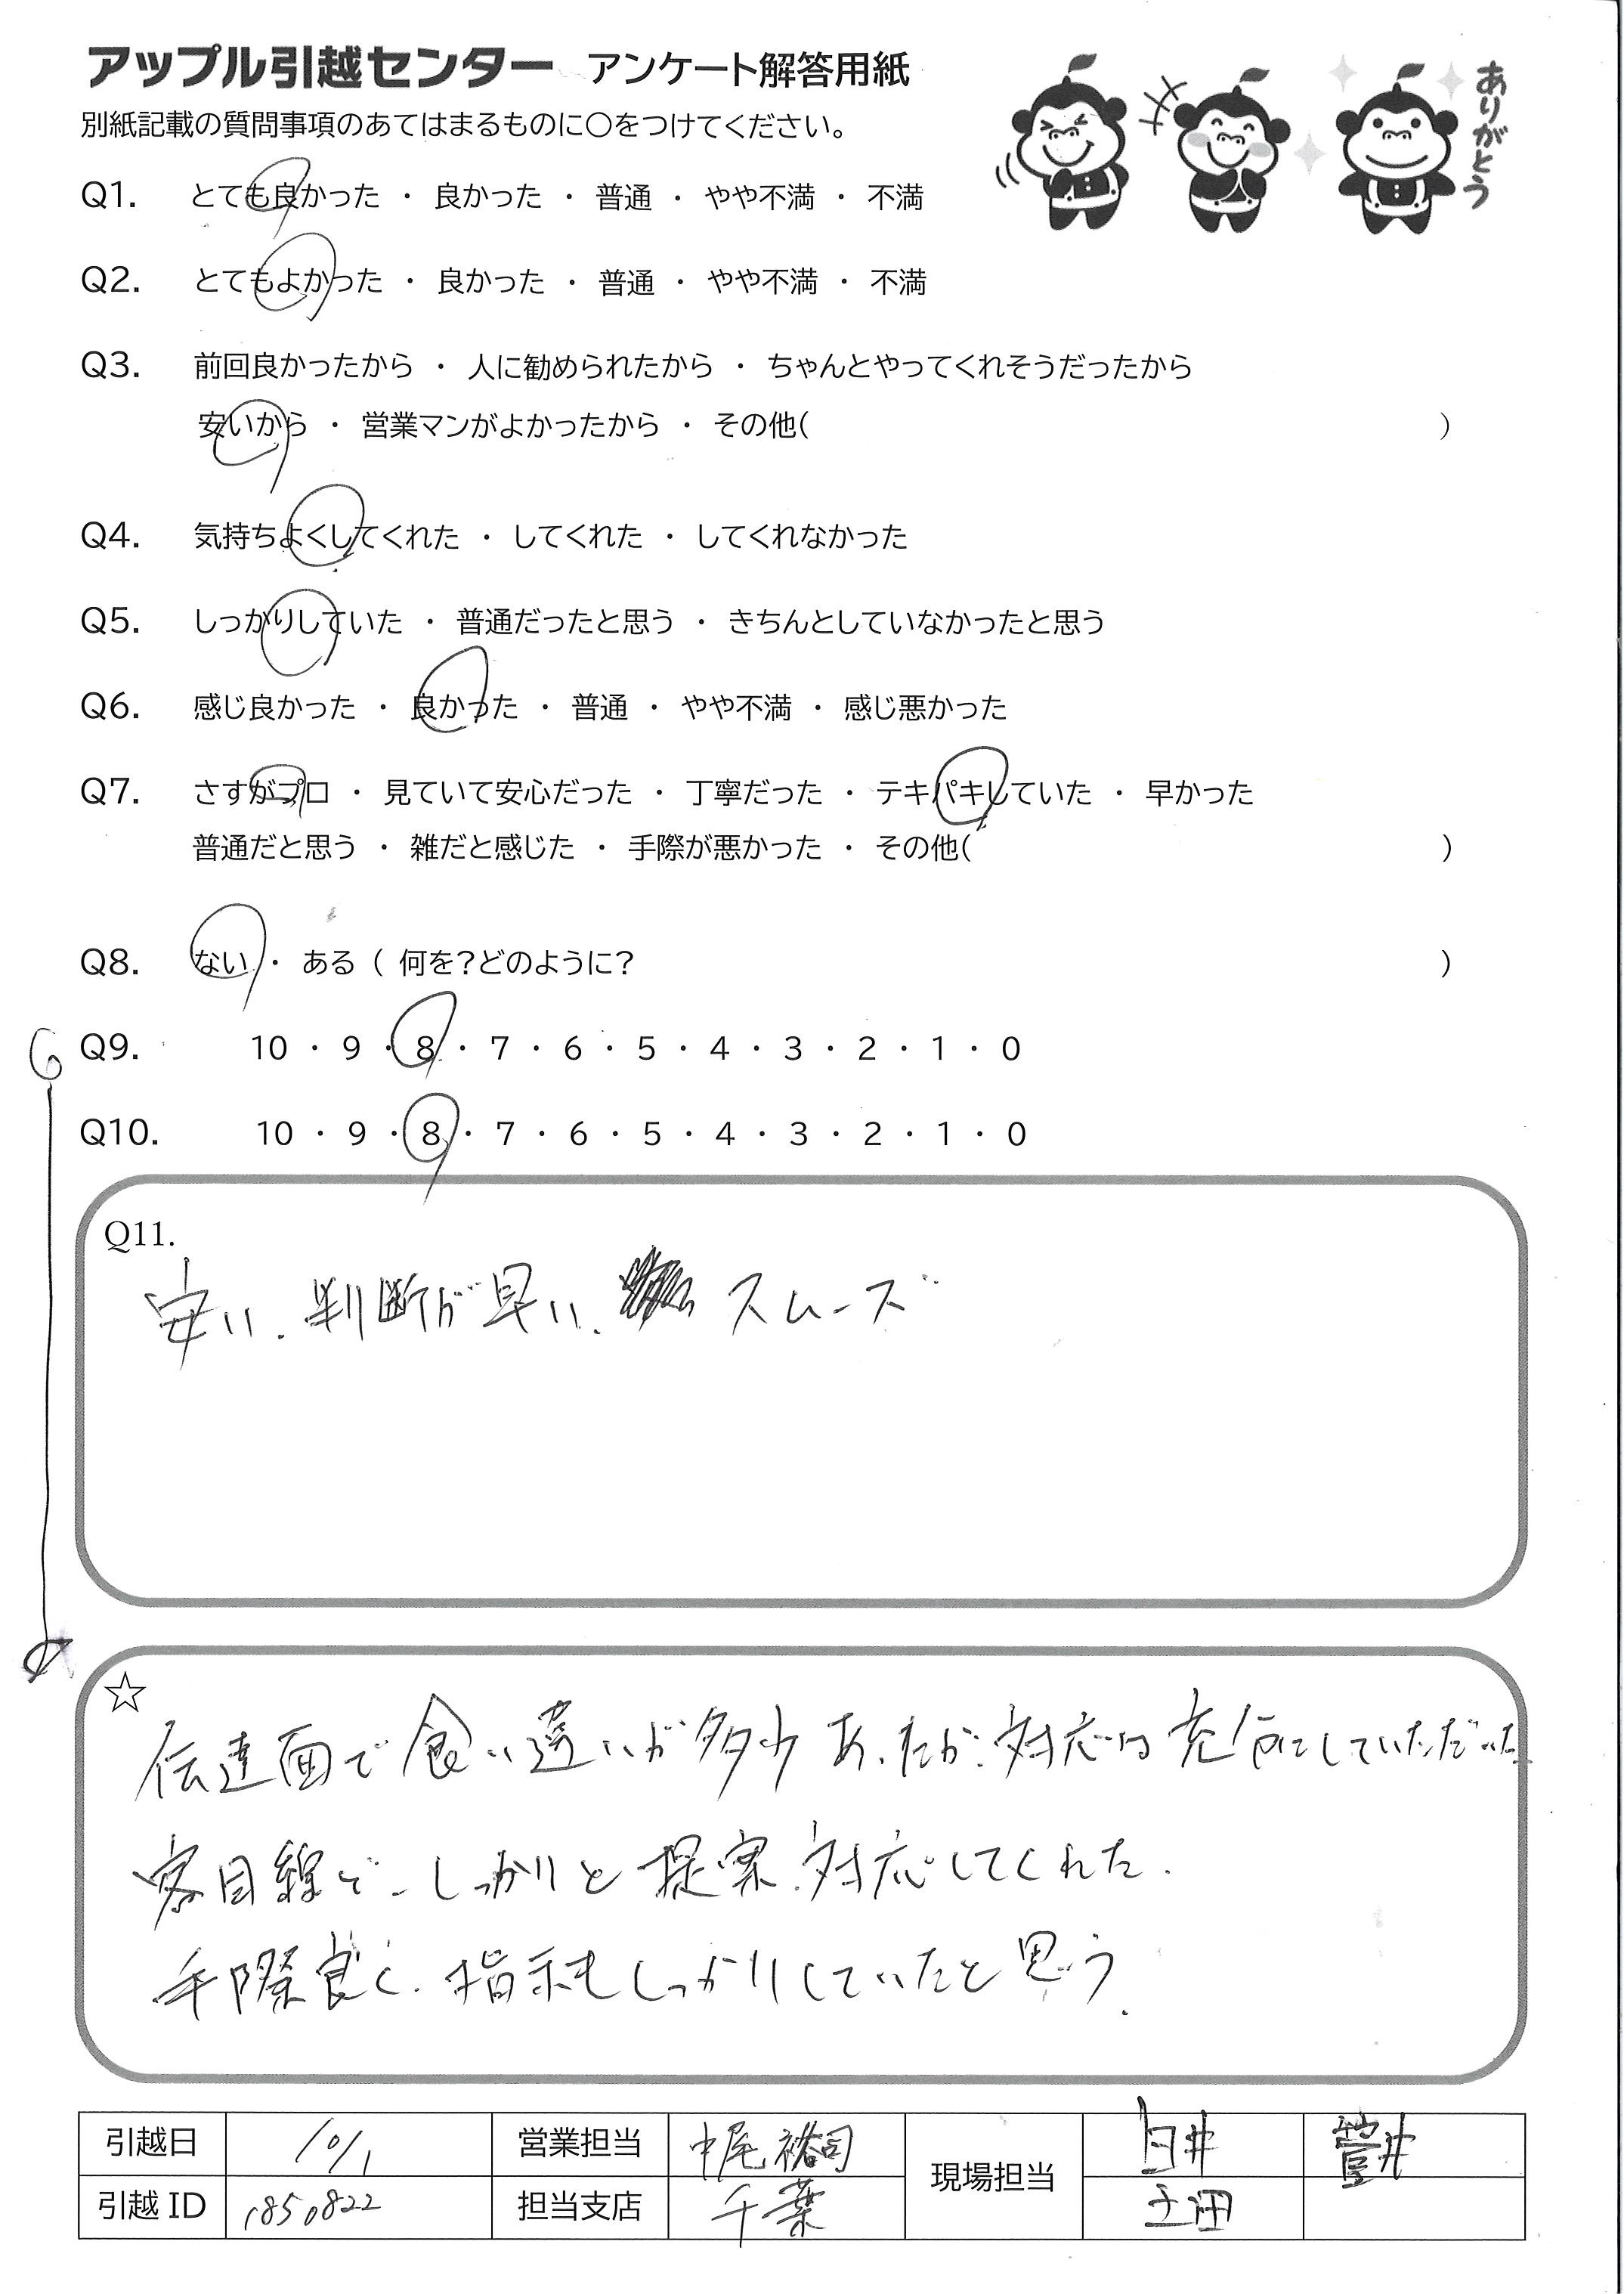 アップル引越センター アンケート解答用紙
ありがとう
別紙記載の質問事項のあてはまるものに○をつけてください。
Q1. とても良かった ・ 良かった ・ 普通 ・ やや不満 ・ 不満
Q2. とてもよかった ・ 良かった ・ 普通 ・ やや不満 ・ 不満
Q3. 前回良かったから ・ 人に勧められたから ・ ちゃんとやってくれそうだったから
安いから ・ 営業マンがよかったから ・ その他( )
Q4. 気持ちよくしてくれた ・ してくれた ・ してくれなかった
Q5. しっかりしていた ・ 普通だったと思う ・ きちんとしていなかったと思う
Q6. 感じ良かった ・ 良かった ・ 普通 ・ やや不満 ・ 感じ悪かった
Q7. さすがプロ ・ 見ていて安心だった ・ 丁寧だった ・ テキパキしていた ・ 早かった
普通だと思う ・ 雑だと感じた ・ 手際が悪かった ・ その他( )
Q8. ない ・ ある ( 何を?どのように? )
Q9. 10 ・ 9 ・ 8 ・ 7 ・ 6 ・ 5 ・ 4 ・ 3 ・ 2 ・ 1 ・ 0
Q10. 10 ・ 9 ・ 8 ・ 7 ・ 6 ・ 5 ・ 4 ・ 3 ・ 2 ・ 1 ・ 0
Q11.
安い、判断が早い、スムーズ
☆
伝達面で食い違いが多少あったが、対応は充分にしていただいた
客目線で、しっかりと提案、対応してくれた。
手際良く、指示もしっかりしていたと思う。
引越日 10/1 営業担当 中尾 裕司 現場担当 臼井
引越 ID 1850822 担当支店 千葉